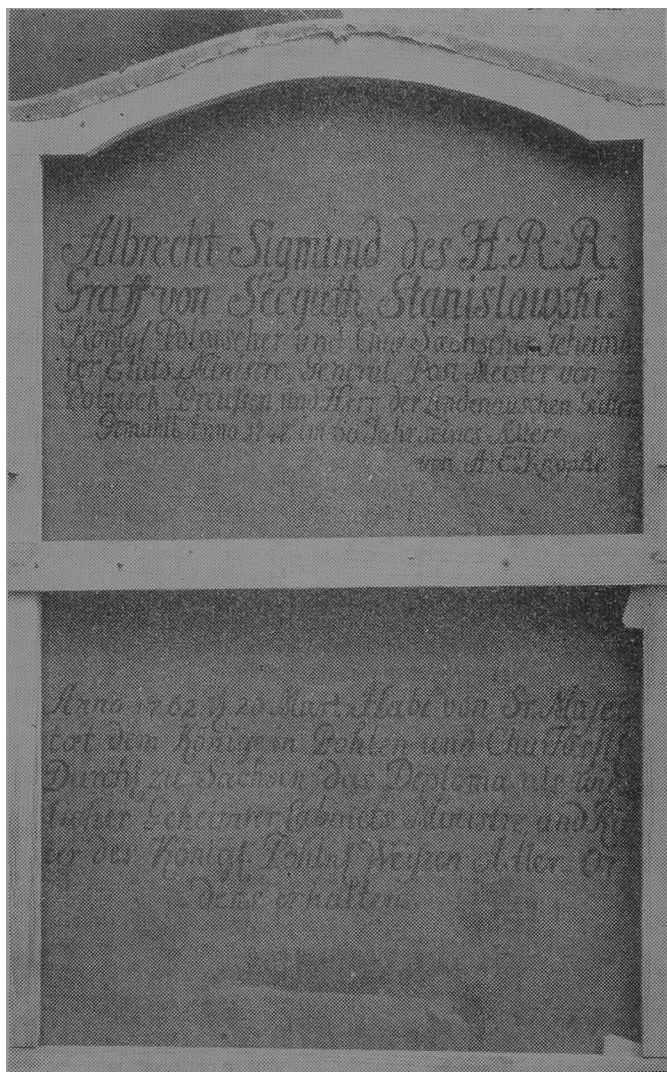 Albrecht Sigmund des H: R: R:
Graff von Seeguth Stanislawski.
Königl Polnischer und Chur Sächscher Geheim
ter Etats Ministre, General, Post Meister von
Polnisch Preußen, und Herr der Lindenauschen Gütter
Gemahlt Anno 1748 im 60 Jahr seines Alters
von A. E. Knopke
Anno 1762 d 20 Mart. Habe von Sr. Majes
tæt dem Könige in Pohlen und Churfürstl
Durchl zu Sachsen das Diploma als wirk
licher Geheimter Cabinets Ministre und Rit
ter des Königl Pohlnl Weißen Adler Or
dens erhalten.